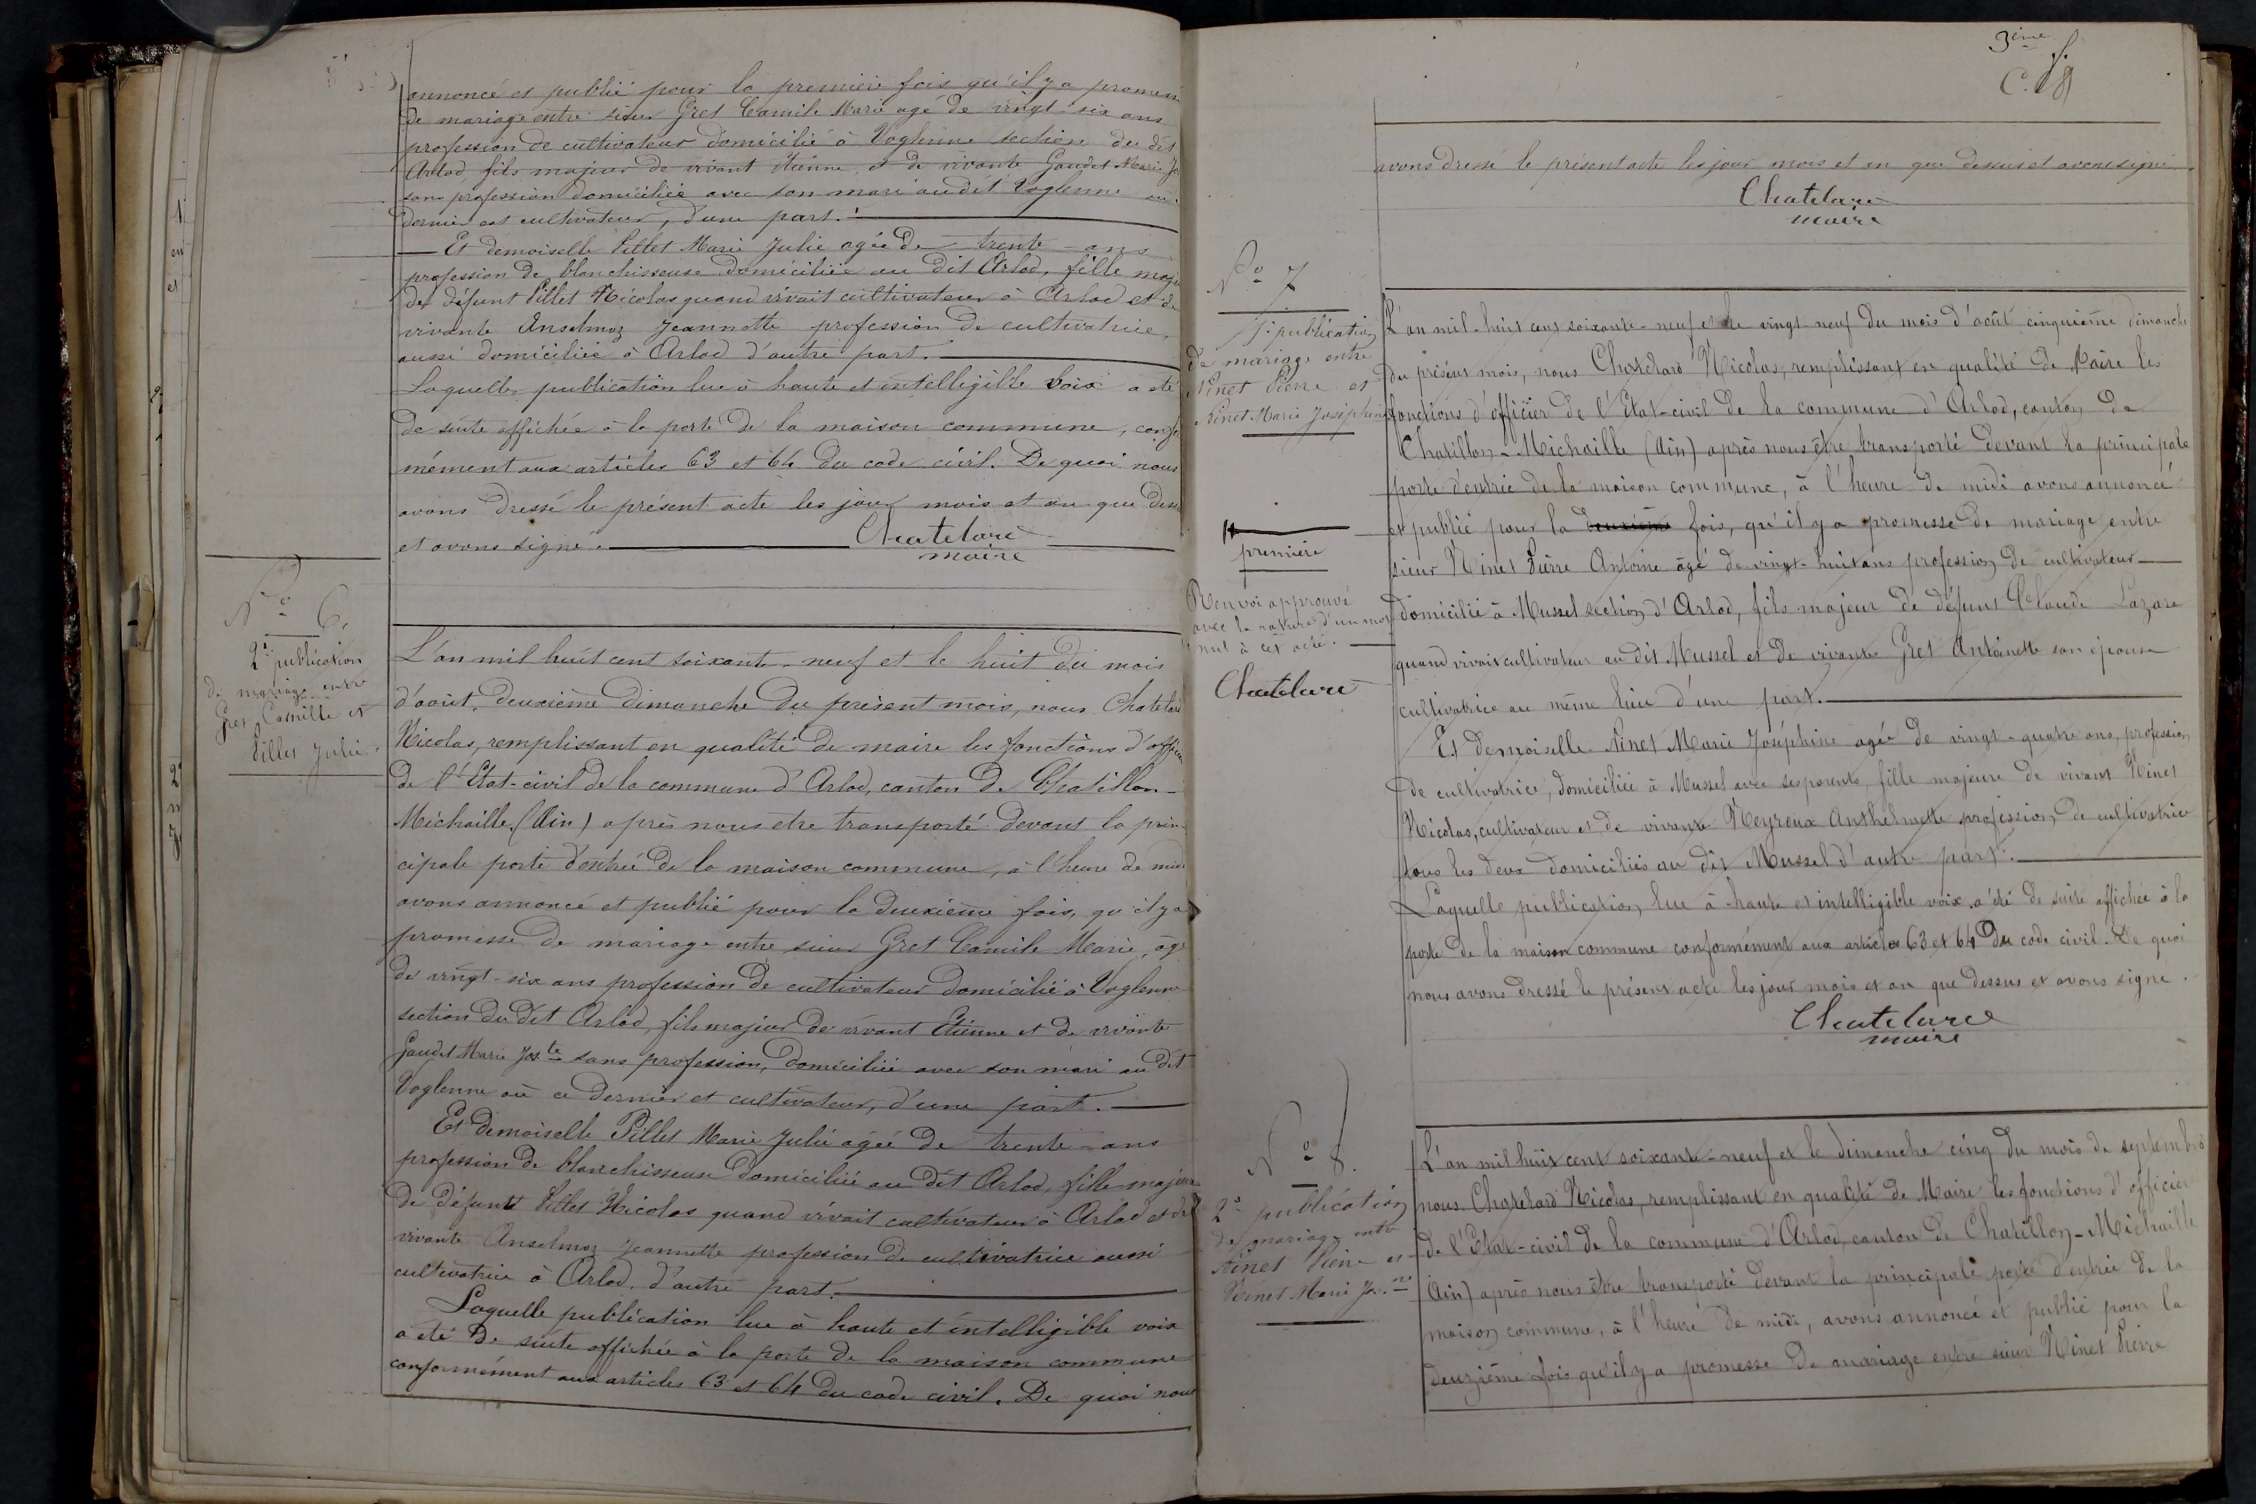 annoncé et publié pour la première fois qu'il y a promesse
de mariage entre sieur Gret Camile Marie agé de vingt-six ans
profession de cultivateur domicilié à Voglenne section du dit
Arlod, fils majeur de vivant Etienne et de vivante Gaudet Marie
sans profession domiciliée avec son mari au dit Voglenne où ce
dernier est cultivateur, d'une part.
Et demoiselle Pillet Marie Julie agée de trente ans
profession de blanchisseuse domiciliée au dit Arlod, fille majeure
de défunt Pillet Nicolas quand vivait cultivateur à Arlod et de
vivante Anselmoz Jeannette profession de cultivatrice
aussi domiciliée à Arlod d'autre part.
Laquelle publication lue à haute et intelligible voix a été
de suite affichée à la porte de la maison commune, confor
mément aux articles 63 et 64 du code civil. De quoi nous
avons dressé le présent acte les jour mois et an que dessus
et avons signé. Chatelard
maire
N° 6.
2e publication
de mariage entre
Gret Camille et
Pillet Julie.
L'an mil huit cent soixante-neuf et le huit du mois
d'août, deuxième dimanche du présent mois, nous Chatelard
Nicolas, remplissant en qualité de maire les fonctions d'officier
de l'Etat-civil de la commune d'Arlod, canton de Chatillon-
Michaille, (Ain) après nous être transporté devant la prin
cipale porte d'entrée de la maison commune, à l'heure de midi
avons annoncé et publié pour la deuxième fois, qu'il y a
promesse de mariage entre sieur Gret Camile Marie, âgé
de vingt-six ans profession de cultivateur domicilié à Voglenne
section du dit Arlod, fils majeur de vivant Etienne et de vivante
Gaudet Marie Jos.te sans profession, domiciliée avec son mari au dit
Voglenne où ce dernier et cultivateur, d'une part.
Et demoiselle Pillet Marie Julie agée de trente-ans
profession de blanchisseuse domiciliée au dit Arlod, fille majeure
de défunt Pillet Nicolas quand vivait cultivateur à Arlod et de
vivante Anselmoz Jeannette profession de cultivatrice aussi
cultivatrice à Arlod, d'autre part.
Laquelle publication lue à haute et intelligible voix
a été de suite affichée à la porte de la maison commune
conformément aux articles 63 et 64 du code civil. De quoi nous
3ème f.
avons dressé le présent acte les jour mois et an que dessus et avons signé
Chatelard
maire
N° 7
1e publication
de mariage entre
Ninet Pierre et
Ninet Marie Joséphine
première
Renvoi approuvé
avec la rature d'un mot
nul à cet acte.
Chatelard
L'an mil-huit cent soixante-neuf et le vingt-neuf du mois d'août cinquième dimanche
du présent mois, nous Chatelard Nicolas, remplissant en qualité de Maire les
fonctions d'officier de l'Etat-civil de la commune d'Arlod, canton de
Chatillon-Michaille (Ain) après nous être transporté devant la principale
porte d'entrée de la maison commune, à l'heure de midi avons annoncé
et publié pour la deuxième fois, qu'il y a promesse de mariage entre
sieur Ninet Pierre Antoine âgé de vingt-huit ans profession de cultivateur
domicilié à Mussel section d'Arlod, fils majeur de défunt Claude Lazare
quand vivait cultivateur au dit Mussel et de vivante Gret Antoinette son épouse
cultivatrice au même lieu d'une part.
Et demoiselle Ninet Marie Joséphine agée de vingt-quatre ans, profession
de cultivatrice, domiciliée à Mussel avec ses parents, fille majeure de vivant Ninet
Nicolas, cultivateur et de vivante Neyroux Anthelmette profession de cultivatrice
tous les deux domiciliés au dit Mussel d'autre part.
Laquelle publication lue à haute et intelligible voix a été de suite affichée à la
porte de la maison commune conformément aux articles 63 et 64 du code civil. De quoi
nous avons dressé le présent acte les jour mois et an que dessus et avons signé.
Chatelard
maire
N° 8.
2e publication
de mariage entre
Ninet Pierre et
Ninet Marie Jos.ne
L'an mil huit cent soixante-neuf et le dimanche cinq du mois de septembre
nous Chatelard Nicolas, remplissant en qualité de Maire les fonctions d'officier
de l'Etat-civil de la commune d'Arlod, canton de Chatillon-Michaille
(Ain) après nous être transporté devant la principale porte d'entrée de la
maison commune, à l'heure de midi, avons annoncé et publié pour la
deuzième fois qu'il y a promesse de mariage entre sieur Ninet Pierre